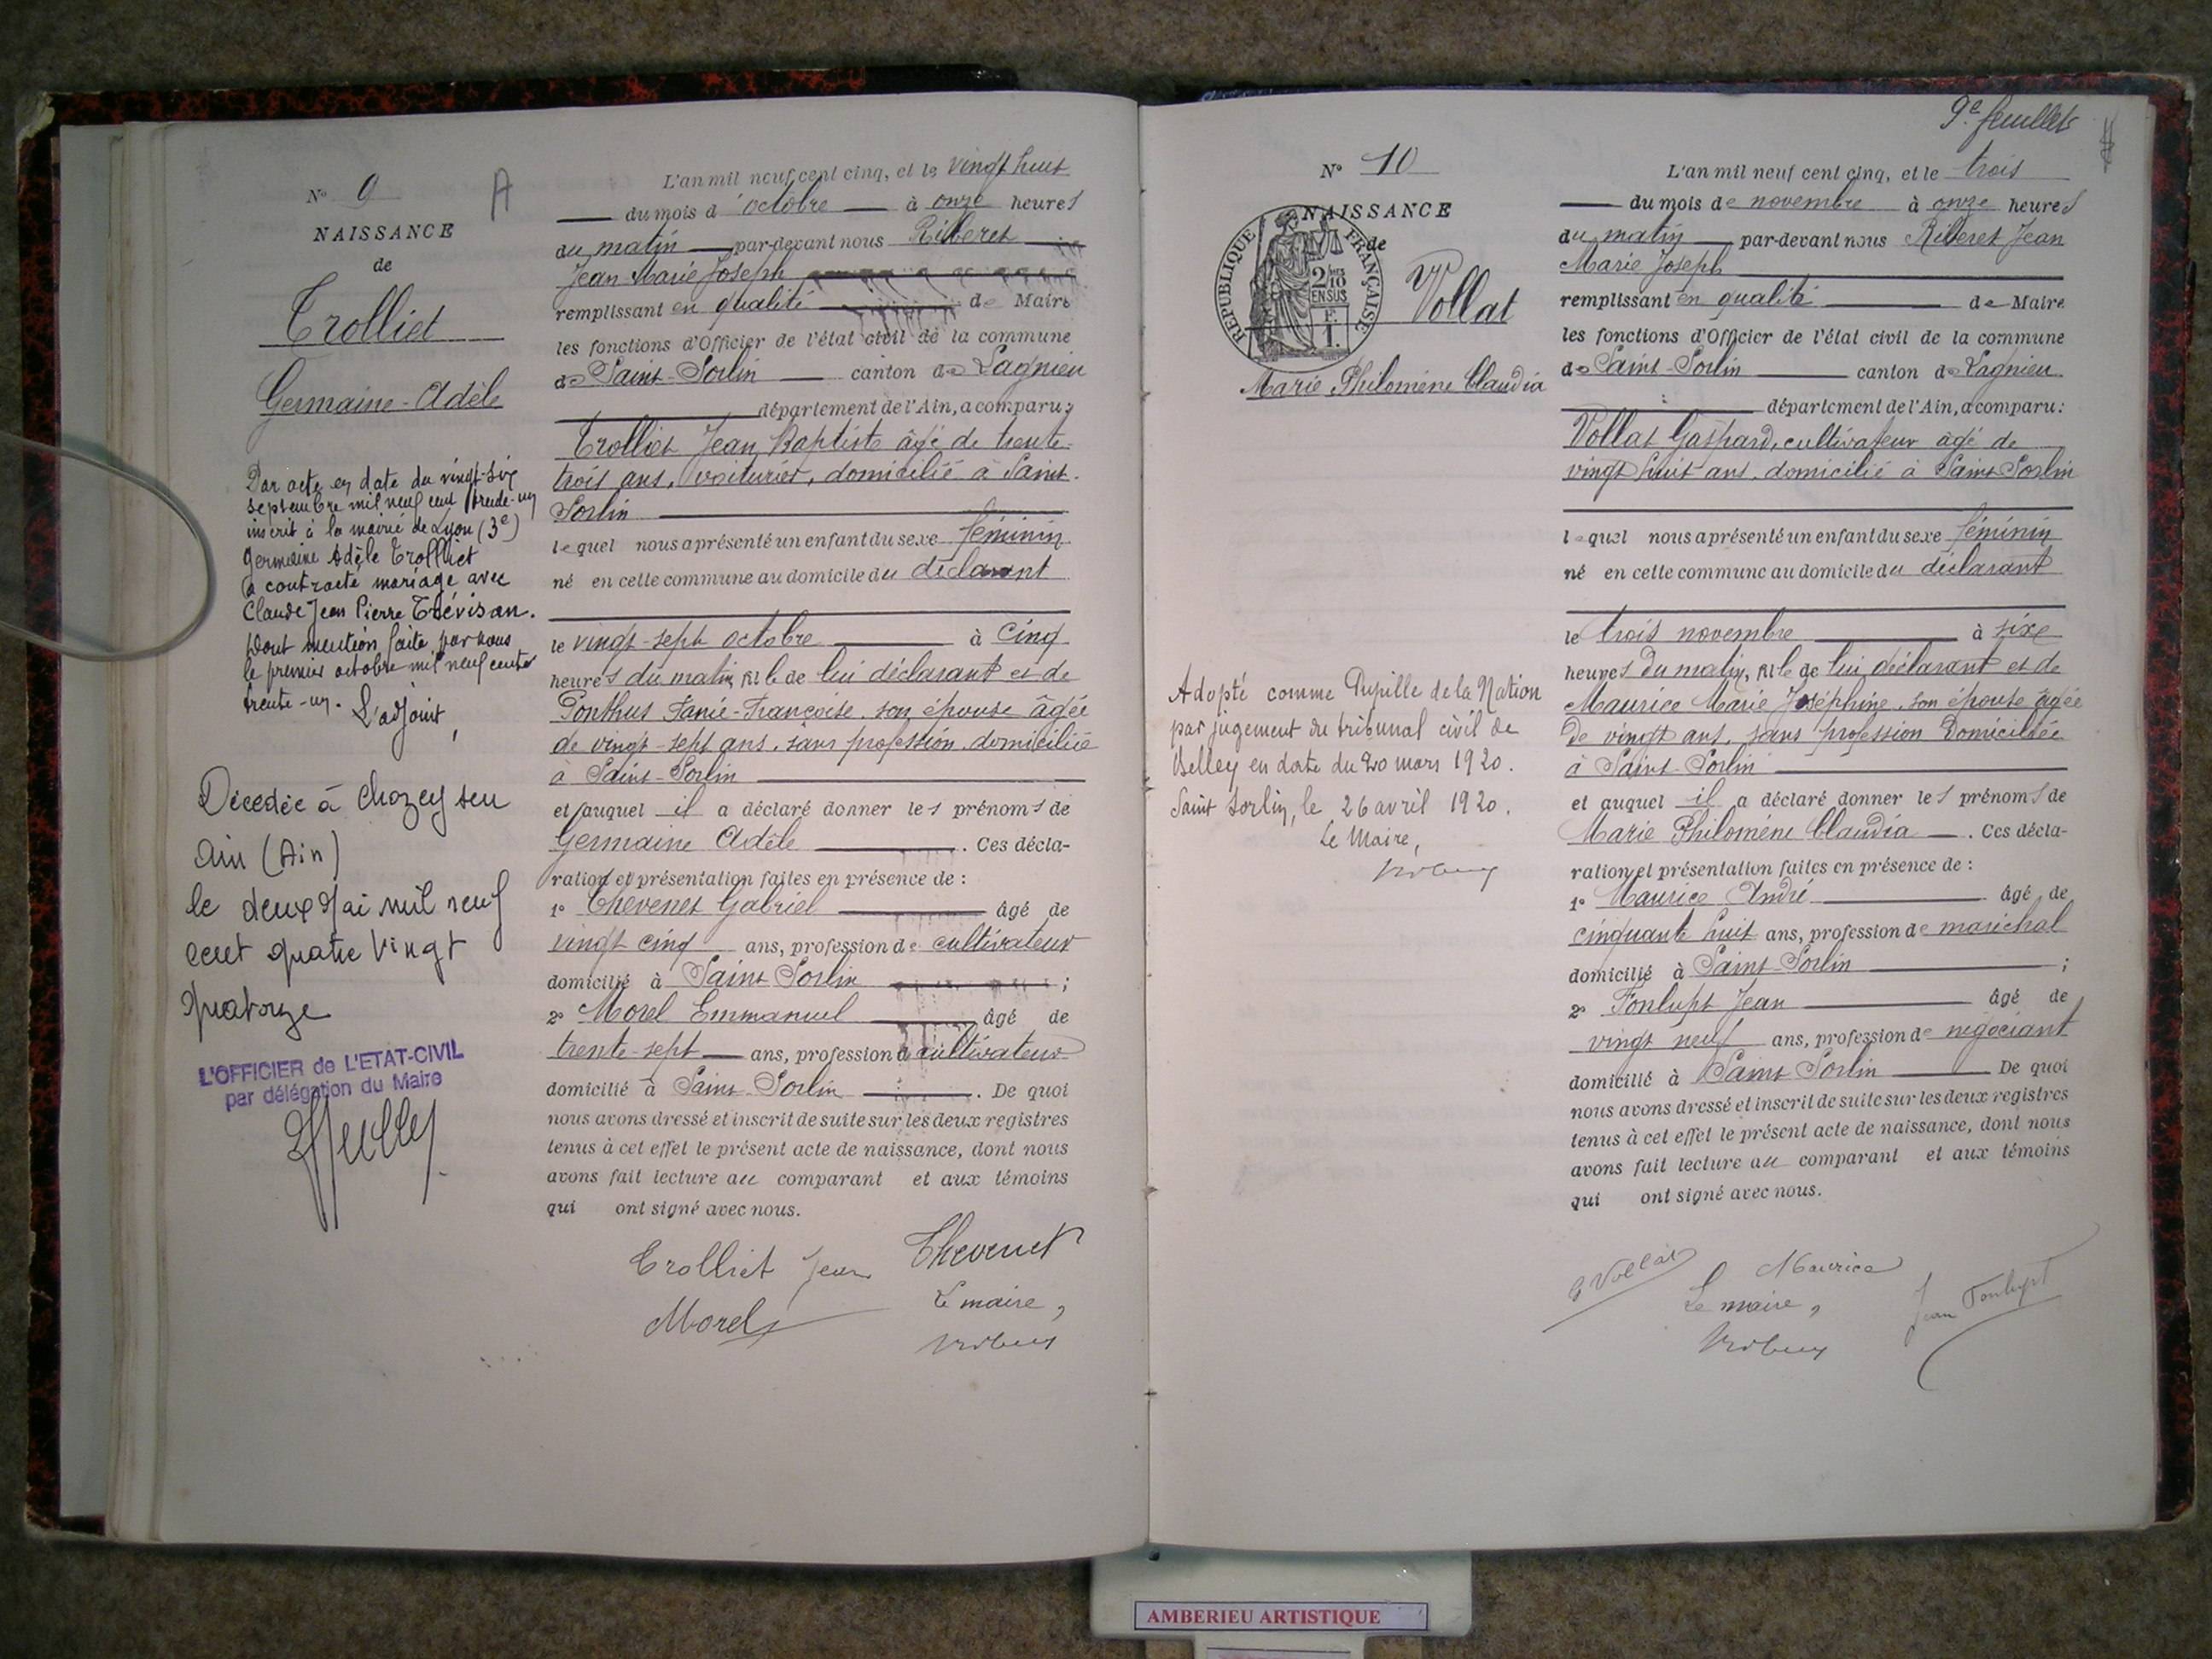 N° 9
A
NAISSANCE
de
Trolliet
Germaine-Adèle
Par acte en date du vingt-six
septembre mil neuf cent trente-un
inscrit à la mairie de Lyon (3e)
Germaine Adèle Trolliet
a contracté mariage avec
Claude Jean Pierre Trévisan.
Dont mention faite par nous
le premier octobre mil neuf cent
trente-un. L'adjoint,
Décédée à Chazey sur
Ain (Ain)
le deux Mai mil neuf
cent quatre vingt
quatorze
L'OFFICIER de L'ETAT-CIVIL
par délégation du Maire
L'an mil neuf cent cinq, et le vingt huit
du mois d'octobre à onze heures
du matin par-devant nous Riberet
Jean-Marie Joseph
remplissant en qualité de Maire
les fonctions d'Officier de l'état civil de la commune
de Saint-Sorlin canton de Lagnieu
département de l'Ain, a comparu:
Trolliet Jean Baptiste âgé de trente-
trois ans, voiturier, domicilié à Saint-
Sorlin
lequel nous a présenté un enfant du sexe féminin
né en cette commune au domicile du déclarant
le vingt-sept octobre à cinq
heures du matin, fille de lui déclarant et de
Ponthus Fanie-Françoise, son épouse âgée
de vingt-sept ans, sans profession, domiciliée
à Saint-Sorlin
et auquel il a déclaré donner les prénoms de
Germaine Adèle . Ces décla-
ration et présentation faites en présence de :
1° Thevenet Gabriel âgé de
vingt cinq ans, profession de cultivateur
domicilié à Saint Sorlin ;
2° Morel Emmanuel âgé de
trente-sept ans, profession de cultivateur
domicilié à Saint-Sorlin . De quoi
nous avons dressé et inscrit de suite sur les deux registres
tenus à cet effet le présent acte de naissance, dont nous
avons fait lecture au comparant et aux témoins
qui ont signé avec nous.
Trolliet Jean Thevenet
Morel Le maire,
9e feuillet
N° 10
NAISSANCE
de
REPUBLIQUE FRANÇAISE
2/10
EN SUS
1 F.
Vollat
Marie Philomène Claudia
Adopté comme Pupille de la Nation
par jugement du tribunal civil de
Belley en date du 20 mars 1920.
Saint Sorlin, le 26 avril 1920.
Le Maire,
L'an mil neuf cent cinq, et le trois
du mois de novembre à onze heures
du matin par-devant nous Riberet Jean
Marie Joseph
remplissant en qualité de Maire
les fonctions d'Officier de l'état civil de la commune
de Saint-Sorlin canton de Lagnieu
département de l'Ain, a comparu:
Vollat Gaspard, cultivateur âgé de
vingt huit ans, domicilié à Saint Sorlin
lequel nous a présenté un enfant du sexe féminin
né en cette commune au domicile du déclarant
le trois novembre à six
heures du matin, fille de lui déclarant et de
Maurice Marie Joséphine, son épouse âgée
de vingt ans, sans profession Domiciliée
à Saint-Sorlin
et auquel il a déclaré donner les prénoms de
Marie Philomène Claudia . Ces décla-
ration et présentation faites en présence de :
1° Maurice André âgé de
cinquante huit ans, profession de maréchal
domicilié à Saint-Sorlin ;
2° Fonlupt Jean âgé de
vingt neuf ans, profession de négociant
domicilié à Saint Sorlin De quoi
nous avons dressé et inscrit de suite sur les deux registres
tenus à cet effet le présent acte de naissance, dont nous
avons fait lecture au comparant et aux témoins
qui ont signé avec nous.
G Vollat Maurice
Le maire, Jean Fonlupt
AMBERIEU ARTISTIQUE